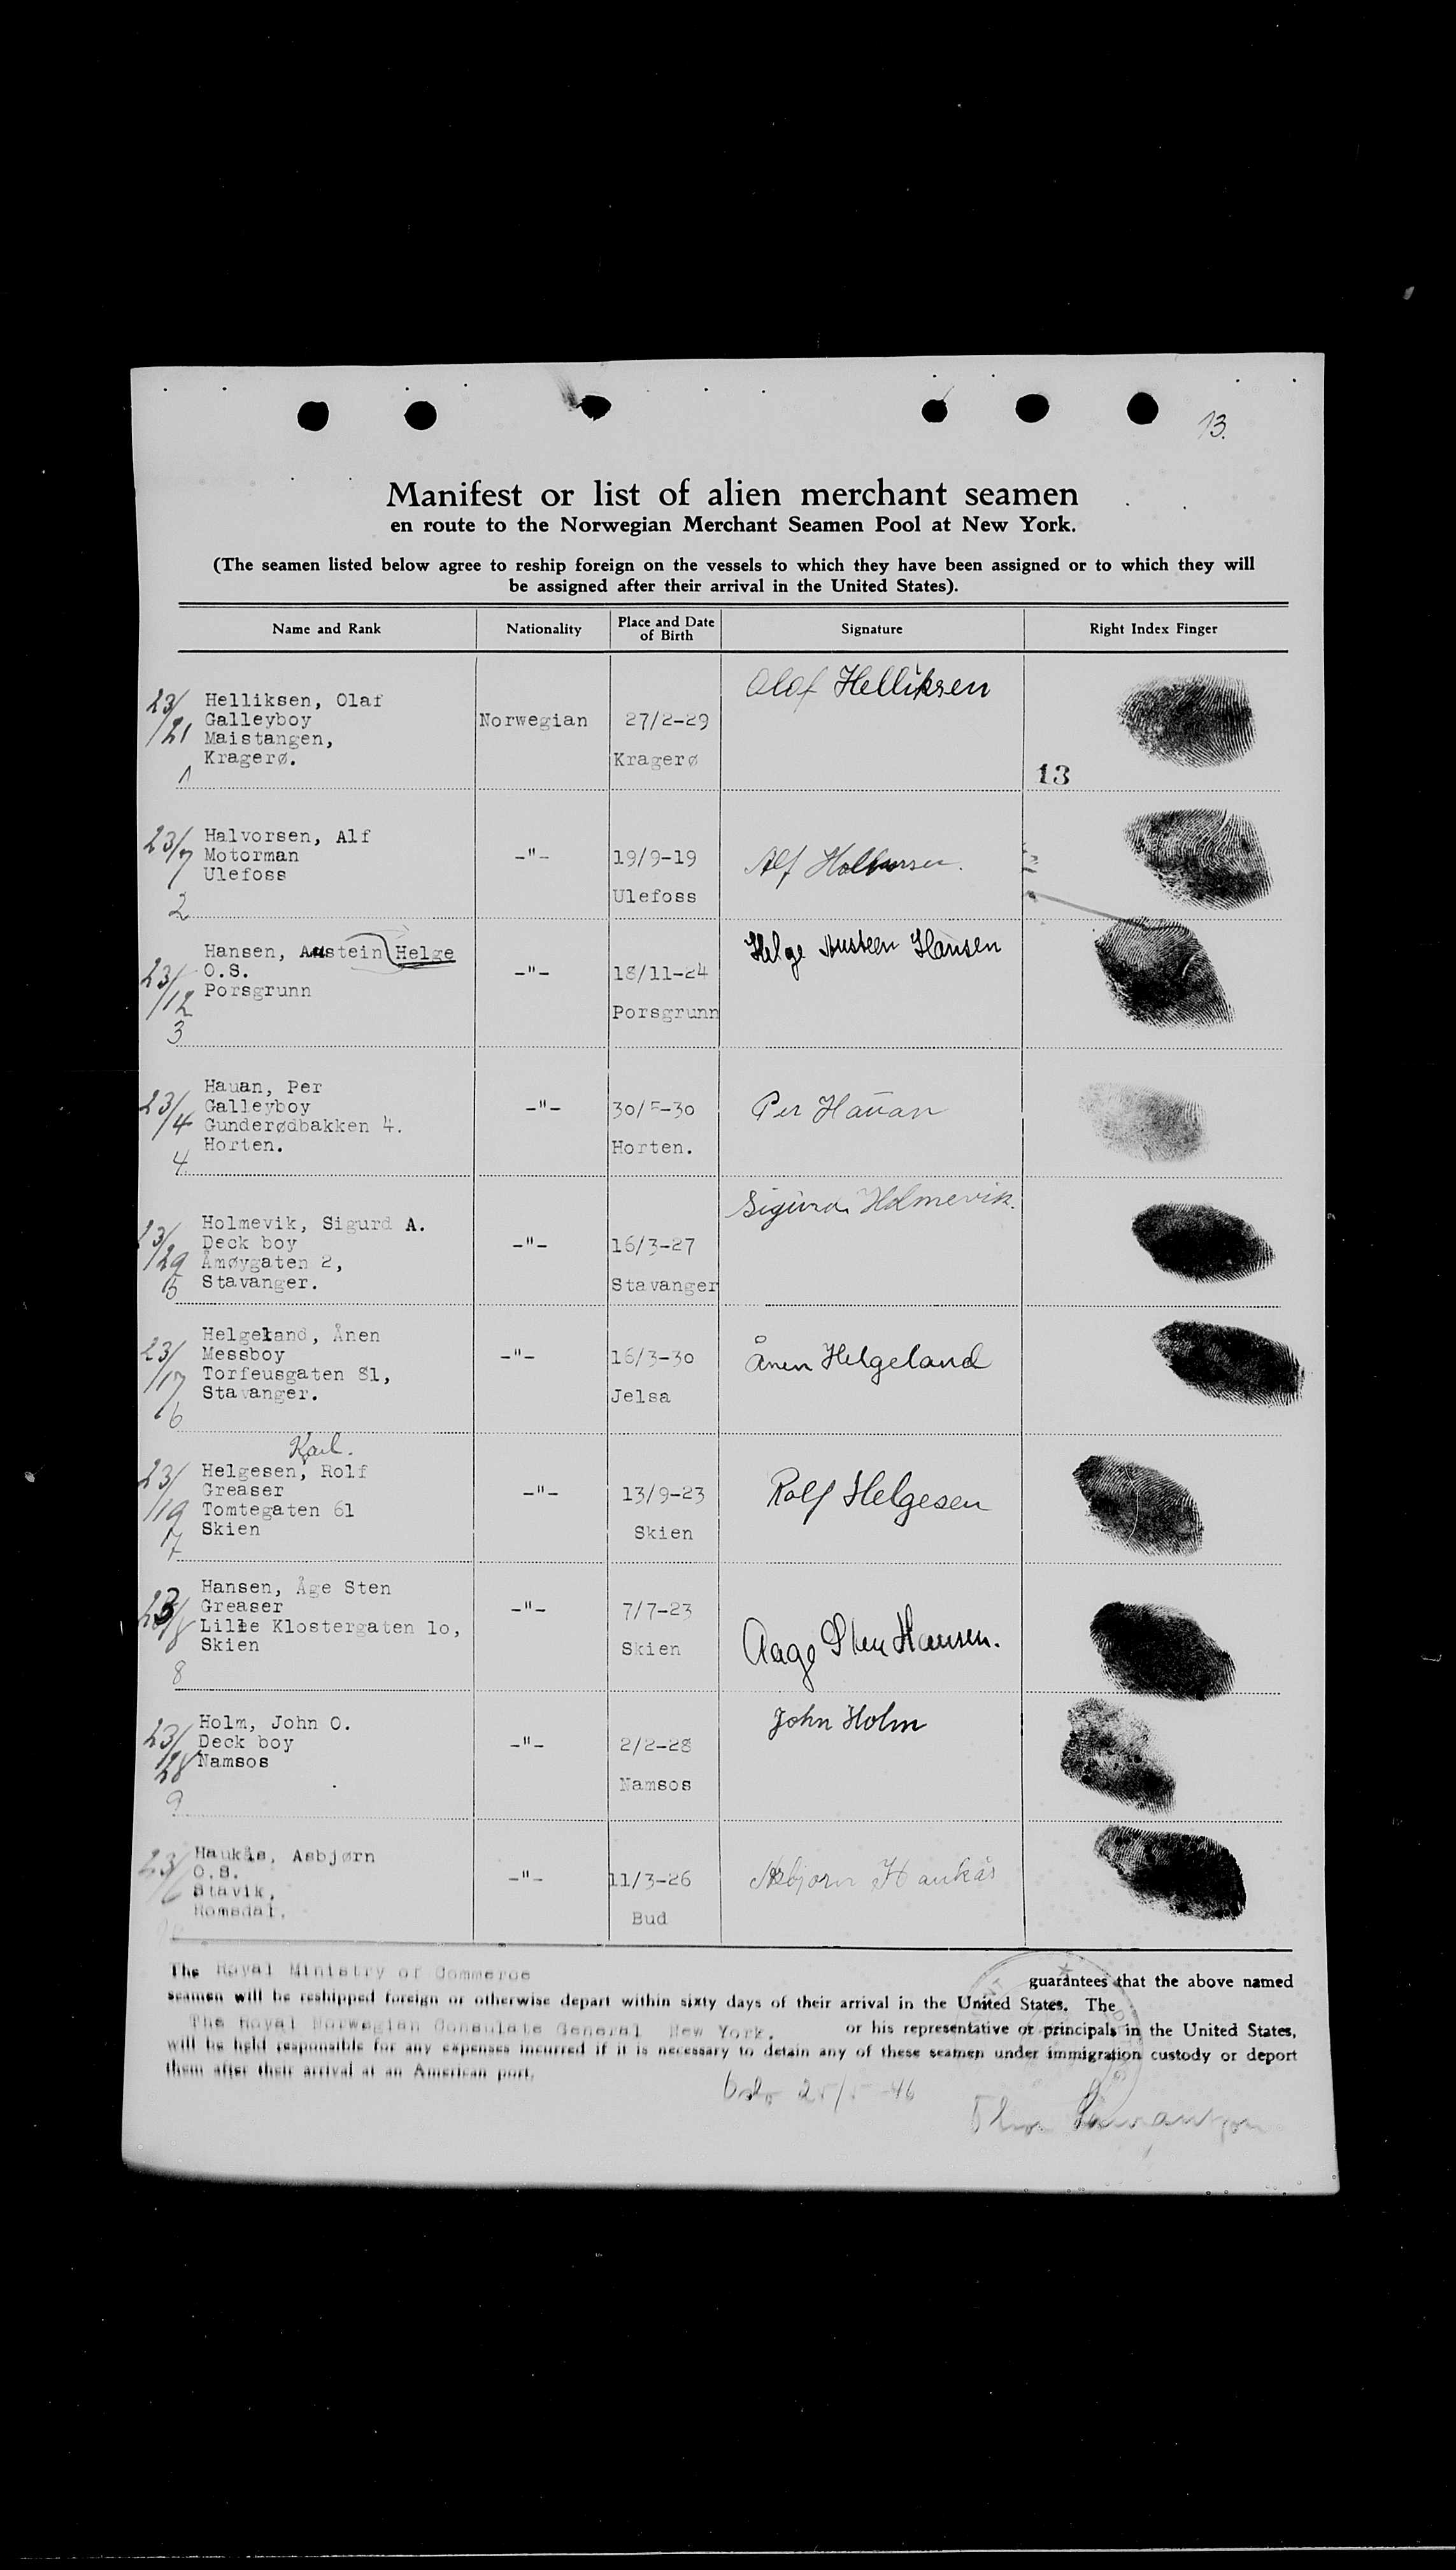 13.
Manifest or list of alien merchant seamen
en route to the Norwegian Merchant Seamen Pool at New York.
(The seamen listed below agree to reship foreign on the vessels to which they have been assigned or to which they will
be assigned after their arrival in the United States).
Name and Rank Nationality Place and Date of Birth Signature Right Index Finger
23/21
1
Helliksen, Olaf
Galleyboy
Maistangen,
Kragerø.
Norwegian
27/2-29
Kragerø
Olaf Helliksen
13
23/7
2
Halvorsen, Alf
Motorman
Ulefoss
-"-
19/9-19
Ulefoss
Alf Halvorsen.
23/12
3
Hansen, Austein Helge
O.S.
Porsgrunn
-"-
18/11-24
Porsgrunn
Helge Austeen Hansen
23/4
4
Hauan, Per
Galleyboy
Gunderødbakken 4.
Horten.
-"-
30/5-30
Horten.
Per Hauan
23/29
5
Holmevik, Sigurd A.
Deck boy
Åmøygaten 2,
Stavanger.
-"-
16/3-27
Stavanger
Sigurd Holmevik.
23/17
6
Helgeland, Ånen
Messboy
Torfeusgaten 81,
Stavanger.
-"-
16/3-30
Jelsa
Ånen Helgeland
23/19
7
Karl.
Helgesen, Rolf
Greaser
Tomtegaten 61
Skien
-"-
13/9-23
Skien
Rolf Helgesen
23/8
8
Hansen, Åge Sten
Greaser
Lille Klostergaten 10,
Skien
-"-
7/7-23
Skien
Aage Sten Hansen.
23/28
9
Holm, John O.
Deck boy
Namsos
-"-
2/2-28
Namsos
John Holm
23/6
Haukås, Asbjørn
O.S.
Stavik,
Romsdal.
-"-
11/3-26
Bud
Asbjørn Haukås
The Royal Ministry of Commerce guarantees that the above named
seamen will be reshipped foreign or otherwise depart within sixty days of their arrival in the United States. The
The Royal Norwegian Consulate General New York. or his representative or principals in the United States,
will be held responsible for any expenses incurred if it is necessary to detain any of these seamen under immigration custody or deport
them after their arrival at an American port.
Oslo 25/5-46